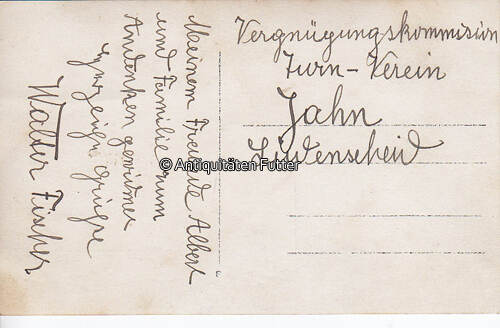 Meinem Freunde Albert
und Familie zum
Andenken gewidmet
Grüsse
Walter Fischer
Vergnügungskommision
Turn-Verein
Jahn
Lüdenscheid
© Antiquitäten Futter